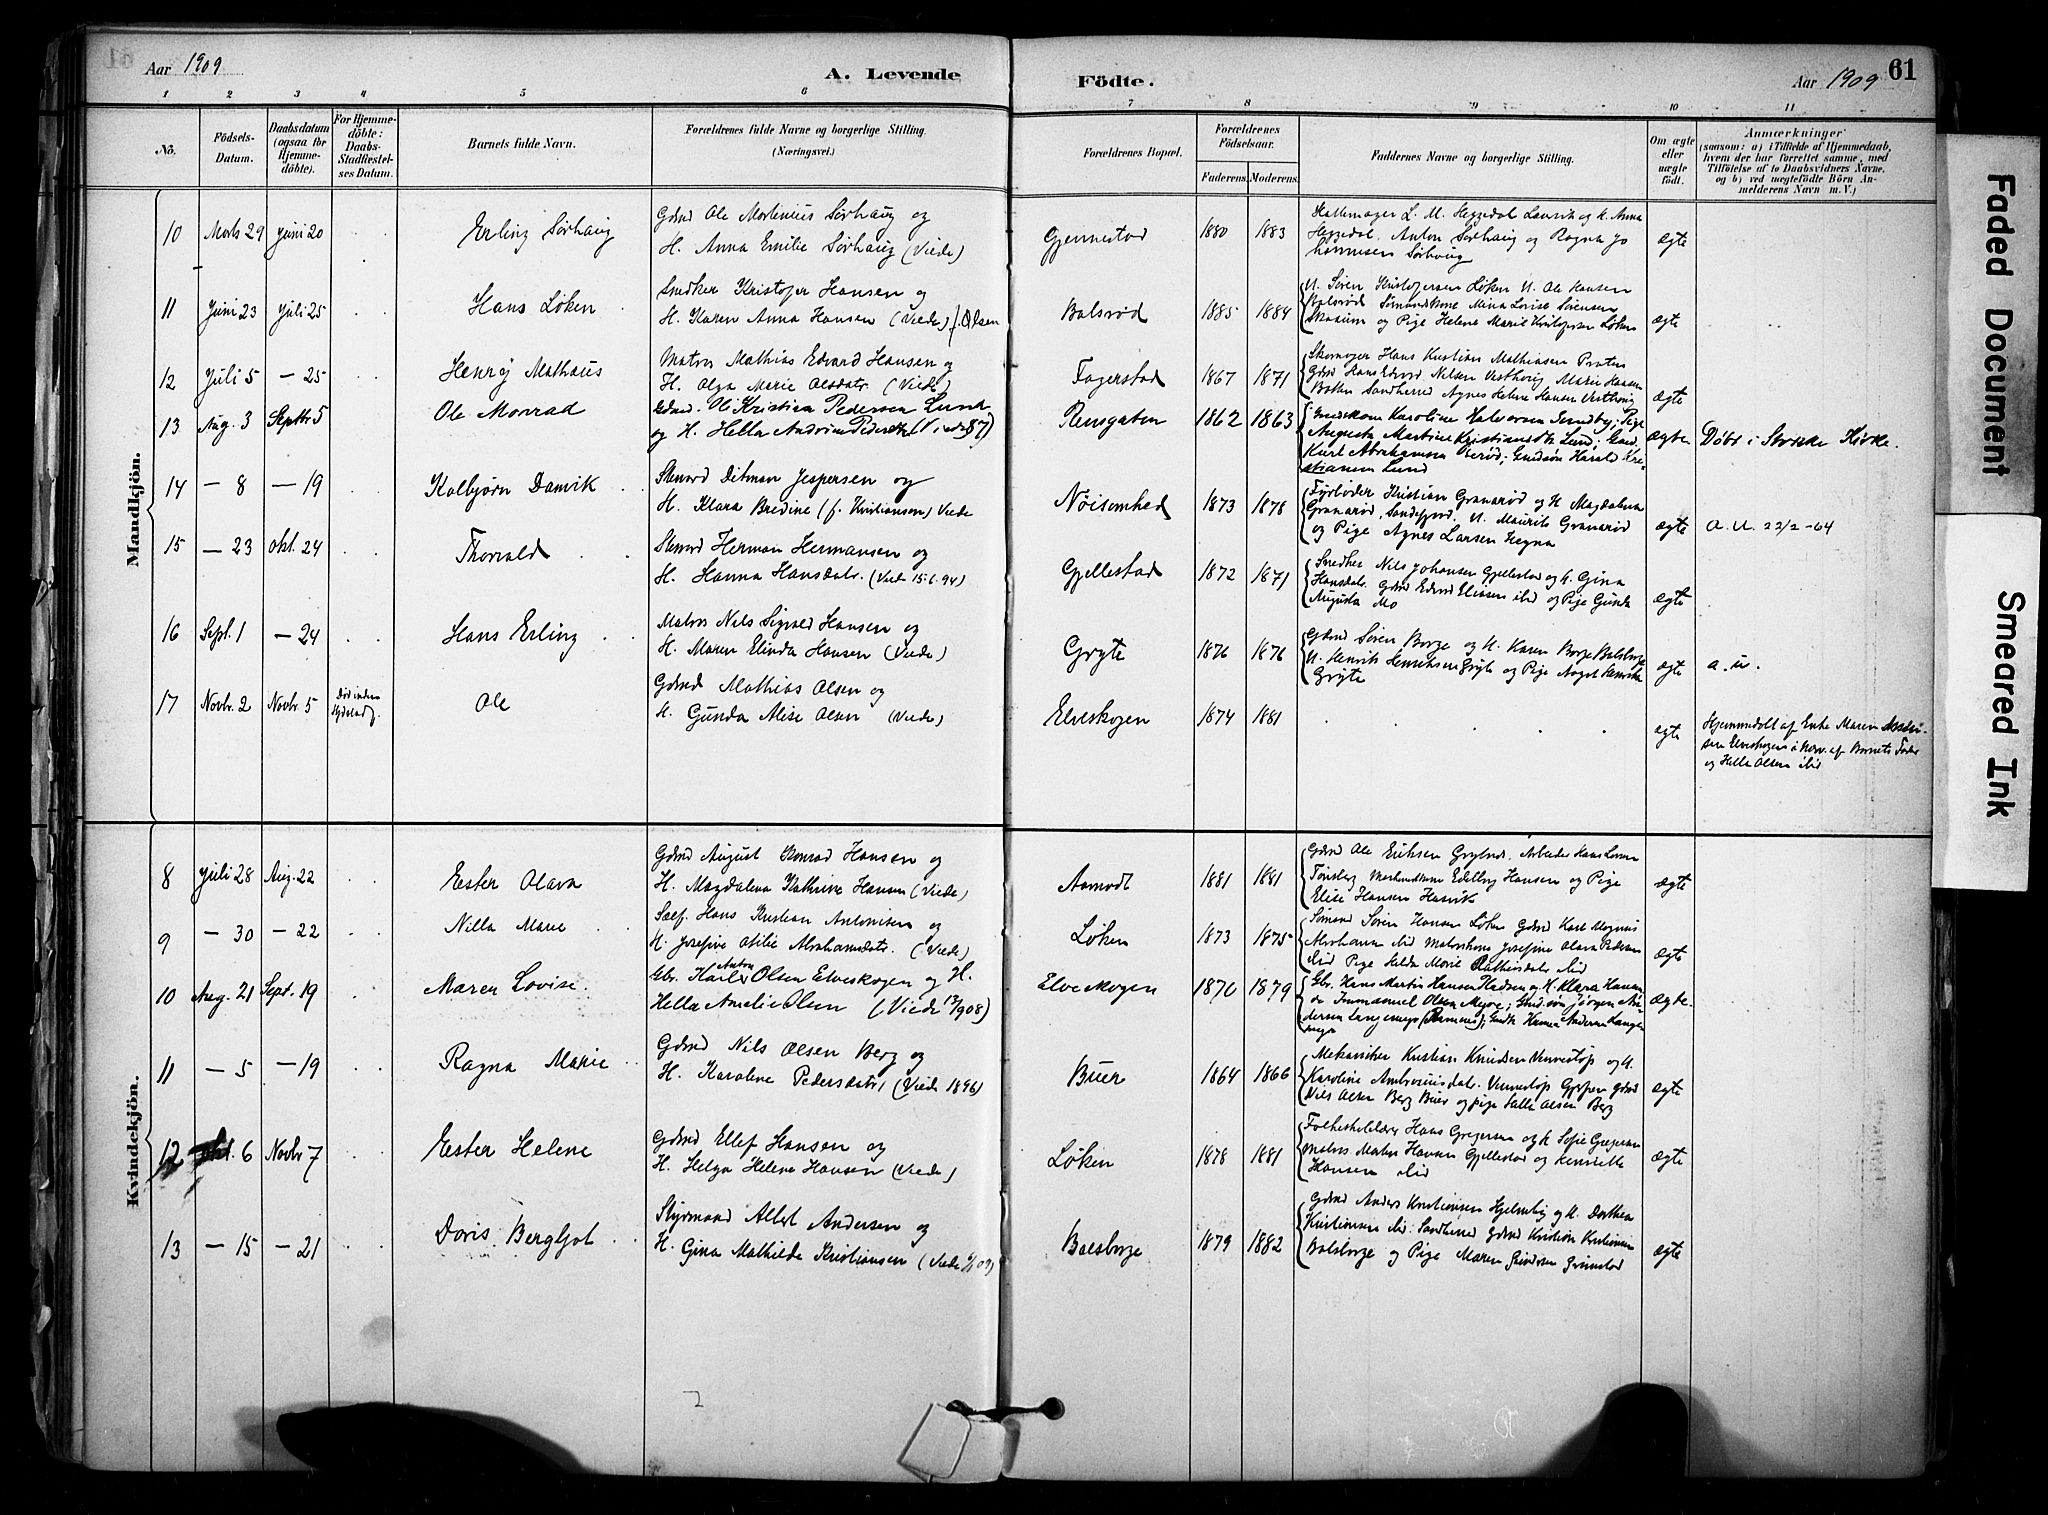 Aar 1909
A. Levende
Födte.
Aar 1909
61
1 2 3 4 5 6 7 8 9 10 11
No.
Födsels-
Datum.
Daabsdatum
(ogsaa for
Hjemme-
döbte).
For Hjemme-
döbte:
Daabs-
Stadfæstel-
ses Datum.
Barnets fulde Navn.
Forældrenes fulde Navne og borgerlige Stilling.
(Næringsvei.)
Forældrenes Bopæl.
Forældrenes
Födselsaar.
Faderens. Moderens.
Faddernes Navne og borgerlige Stilling.
Om ægte
eller
uægte
födt.
Anmærkninger
(saasom: a) i Tilfælde af Hjemmedaab,
hvem der har forrettet samme, med
Tilföielse af to Daabsvidners Navne,
og b) ved uægtefödte Börn An-
melderens Navn m. V.)
Mandkjön.
10 Marts 29 Juni 20 Erling Sørhaug
Gdmd Ole Martinius Sørhaug og
H. Anna Emilie Sørhaug (Viede)
Gjennestad 1880 1883
L. M. Heggedal Laurvik og K. Anna
Heggedal, Anton Sørhaug og Ragna Jo
hannesen Sørhaug
ægte
11 Juni 23 Juli 25 Hans Løken
Snedker Kristofer Hansen og
H. Karen Anna Hansen (Viede) f. Olsen
Bolsrød 1885 1884
U. Søren Kristofersen Løken U. Ole Hansen
Bolsrød Sømandskone Mina Lovise Sørensen
og Pige Helene Marie Kristofersen Løken
ægte
12 Juli 5 — 25 Henry Mathæus
Matros Mathias Edvard Hansen og
H. Olga Marie Olsdatr. (Viede)
Fagerstad 1867 1871
Skomager Hans Kristian Mathiasen
Gdmd Hans Edvard Nilsen Vesthaug Marie Hansen
Sandherred Agnes Helene Hansen Vesthaug
ægte
13 Aug. 3 Septbr 5 Ole Monrad
Gdmd. Ole Kristian Pedersen Lund
og H. Hella Andrine Pedersdtr (Viede 87)
1862 1863
Karoline Halvorsen Sundby; Pige
Augusta Martine Kristiansdtr Lund; Gmd.
Karl Abrahamsen Berød; Gmdsøn Harald Kri-
stiansen Lund
ægte Døbt i Stokke Kirke.
14 — 8 — 19 Kolbjørn Damvik
Sømand Ditman Jespersen og
H. Klara Bredine (f. Kristiansen) Viede
Nøisomhed 1873 1878
Fyrbøder Kristian Granerød og K Magdalena
Granerød, Sandefjord. U. Maurits Granerød
og Pige Agnes Larsen Hegna
ægte A. U. 22/2 -64
15 — 23 Okt. 24 Thorvald
Sømand Herman Hermansen og
H. Hanna Hansdatr. (Viede 15.6.94)
Gjellestad 1872 1871
Snedker Nils Johansen Gjellestad og K. Gina
Hansdatr. Gdmd Edvard Eliasen ibid og Pige Gunda
Augusta Mo
ægte
16 Sept. 1 — 24 Hans Erling
Matros Nils Sigvald Hansen og
H. Maren Elinda Hansen (Viede)
Gryte 1876 1876
Gdmd Søren Borge og K. Karen Borge Bolsborge
U. Henrik Henriksen Gryte og Pige Aagot Henrikse
Gryte
ægte a. u.
17 Novbr. 2 Novbr. 5 Død inden Ole
Gdmd Mathias Olsen og
H. Gunda Alise Olsen (Viede)
Elveskogen 1874 1881
ægte
Hjemmedøbt af Enke Maren
Elveskogen i Nærv. af Barnets Fader
og Hella Olsen ibid
Kvindekjön.
8 Juli 28 Aug. 22 Ester Olava
Gdmd August Konrad Hansen og
H. Magdalena Kathrine Hansen (Viede)
Aamodt 1881 1881
Gdmd Ole Eriksen Arbeider Hans Larsen
Tønsberg Edelborg Hansen og Pige
Elise Hansen Hasvik
ægte
9 — 30 — 22 Nilla Marie
Sælf. Hans Kristian Antonisen og
H. Josefine Otilie Abrahamsdatr. (Viede)
Løken 1873 1875
Sømand Søren Hansen Løken Gdmd Karl Magnus
Abrahamsen ibid Matroskone Josefine Olava Pedersen
ibid Pige Hilda Marie Mathisdatr ibid
ægte
10 Aug. 21 Sept. 19 Maren Lovise.
Gbr. Karl Anton Olsen Elveskogen og H.
Hella Amalie Olsen (Viede 1908)
Elveskogen 1870 1879
Gbr. Hans Martin Hansen Fladsen og K. Klara Hansen
do Immanuel Olsen Myhre; Gmd.søn Jørgen An-
dersen Langemyr; Gmdtr Hanna Andersen Lange
myr
ægte.
11 — 5 — 19 Ragna Marie
Gdmd Nils Olsen Berg og
H. Karoline Pedersdatr. (Viede 1896)
Buer 1864 1866
Mekaniker Kristian Knudsen Vennestøp og K.
Karoline Ambrosiusdatr. Vennestøp Gdmd
Nils Olsen Berg Buer og Pige Halla Olsen Berg
ægte
12 Okt. 6 Novbr 7 Ester Helene
Gdmd Ellef Hansen og
H. Helga Helene Hansen (Viede)
Løken 1878 1881
Folkeskolelærer Hans Gregersen og K Sofie Gregersen
Matros Martin Hansen Gjellestad og Henriette
Hansen ibid
ægte
13 — 15 — 21 Doris Bergljot
Styrmand Albert Andersen og
H. Gina Mathilde Kristiansen (Viede 09)
Bolsborge 1879 1882
Gdmd Anders Kristiansen Hjelmby og K. Dorthea
Kristiansen ibid. Sandherred Gdmd Kristian Kristiansen
Bolsborge og Pige Maren Grimstad
ægte
Faded Document
Smeared Ink